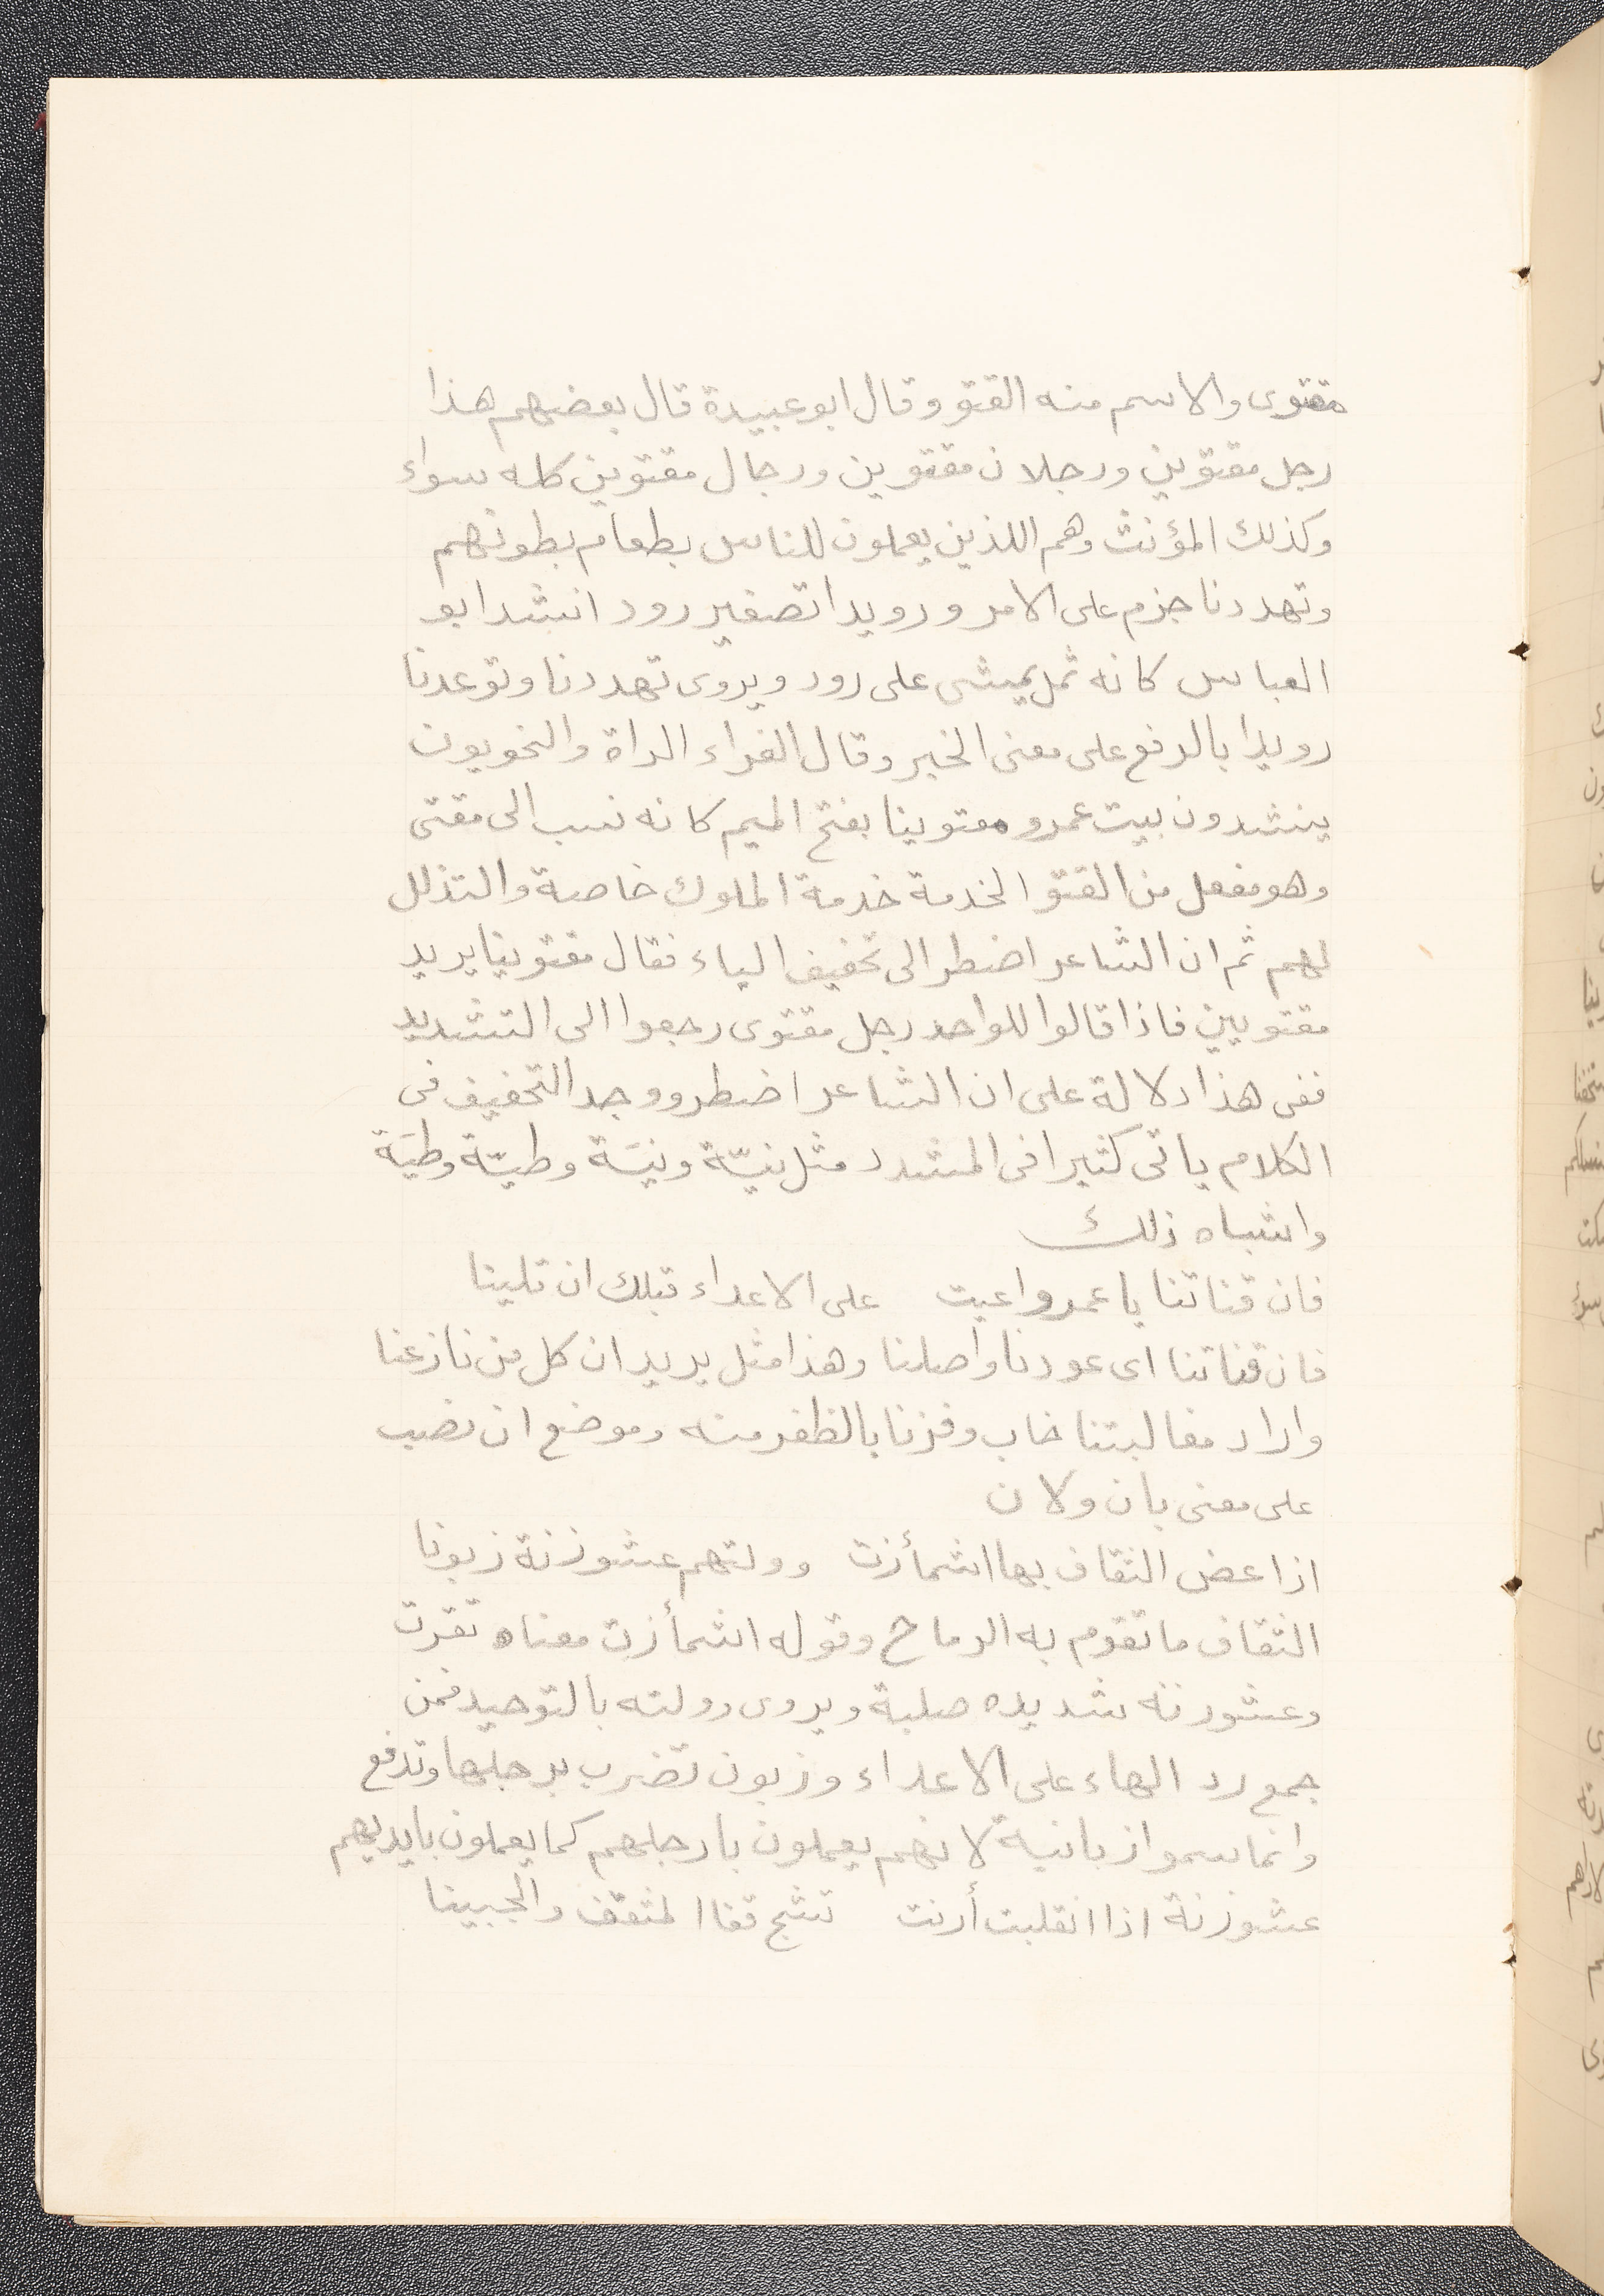 مقتوى والاسم منه القتو وقال ابو عبيدة قال بعضهم هذا
رجل مقتوين ورجلان مقتوين ورجال مقتوين كله سواء
وكذلك المؤنث وهم اللذين يعملون للناس بطعام بطونهم
وتهددنا جزم على الامر ورويدا تصغير رود انشد ابو
العباس كانه ثمل يمشى على رود ويروى تهددنا وتوعدنا
رويدا بالرفع على معنى الخبر وقال الفراء الراة والنحويون
ينشدون بيت عمرو مقتوينا بفتح الميم كانه نسب الى مقتى
وهو مفعل من القتو الخدمة خدمة الملوك خاصة والتذلل
لهم ثم ان الشاعر اضطر الى تخفيف الياء فقال مقتوينا يريد
مقتويين فاذا قالوا للواحد رجل مقتوى رجعوا الى التشديد
ففى هذا دلالة على ان الشاعر اضطر ووجد التخفيف فى
الكلام ياتى كثيرا فى المشدد مثل نيّة ونيَة وطيّة وطيَة
واشباه ذلك
فان قناتنا يا عمرو اعيت على الاعداء قبلك ان تلينا
فان قناتنا اى عودنا واصلنا وهذا مثل يريد ان كل من نازعنا
واراد مغالبتنا خاب وفزنا بالظفر منه وموضع ان نصب
على معنى بان ولان
اذا عض الثقاف بها اشمأزت وولتهم عشوزنة زبونا
الثقاف ما تقوم به الرماح وقوله اشمأزت معناه نفرت
وعشوزنه شديده صلبة ويروى وولته بالتوحيد فمن
جمع رد الهاء على الاعداء وزبون تضرب برجلها وتدفع
وانما سموا زبانية لانهم يعملون بارجلهم كما يعملون بايديهم
عشوزنة اذا انقلبت أرنت تشج قفا المثقف والجبينا